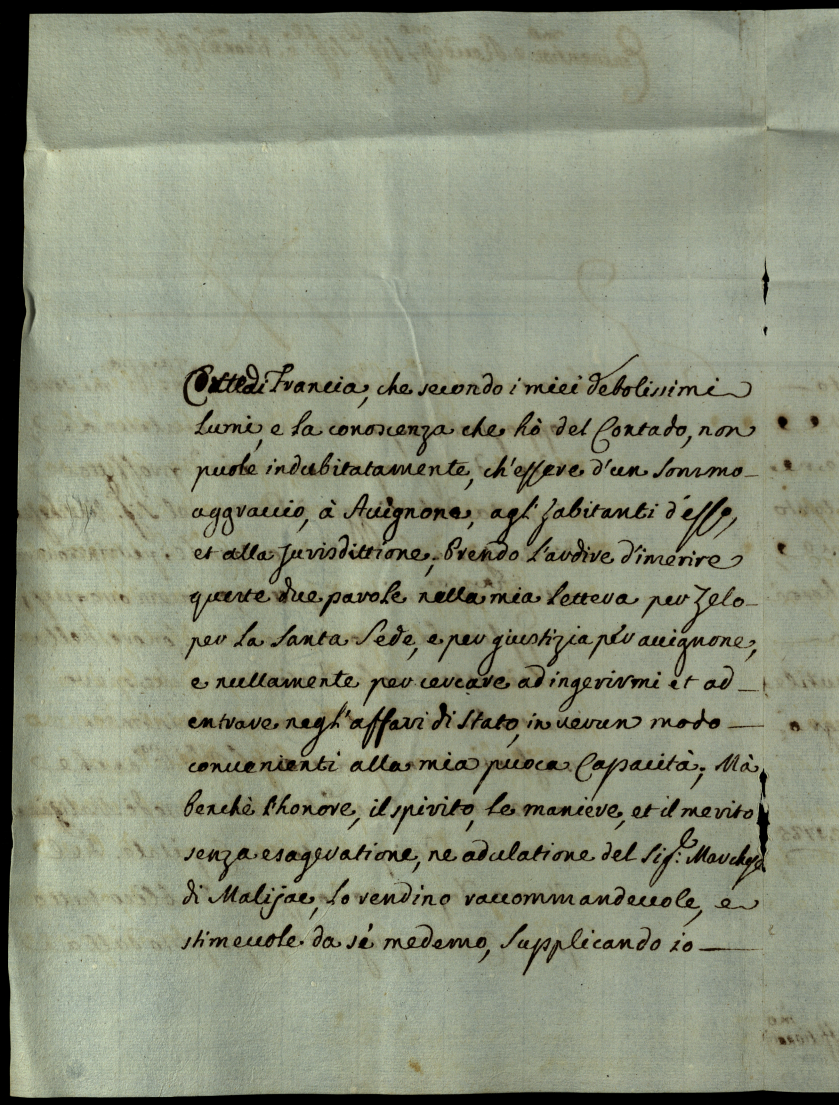 Città di Francia, che secondo i miei debolissimi
lumi, e la conoscenza che hò del Contado, non
puole indubitatamente, ch'essere d'un sommo
aggravio, à Avignone, agl'habitanti d'esso,
et alla Jurisdittione, Prendo l'ardire d'inserire
queste due parole nella mia lettera per Zelo
per la Santa Sede, e per giustizia pér avignone,
e nullamente per cercare ad ingerirmi et ad
entrare negl'affari di Stato, in verun modo
convenienti alla mia puoca Capacità; Mà
benchè l'honore, il spirito, le maniere, et il merito
senza esageratione, ne adulatione del Sig.r Marchese
di Malijac, lo rendino raccommandevole, e
stimevole da sé medemo, Supplicando io